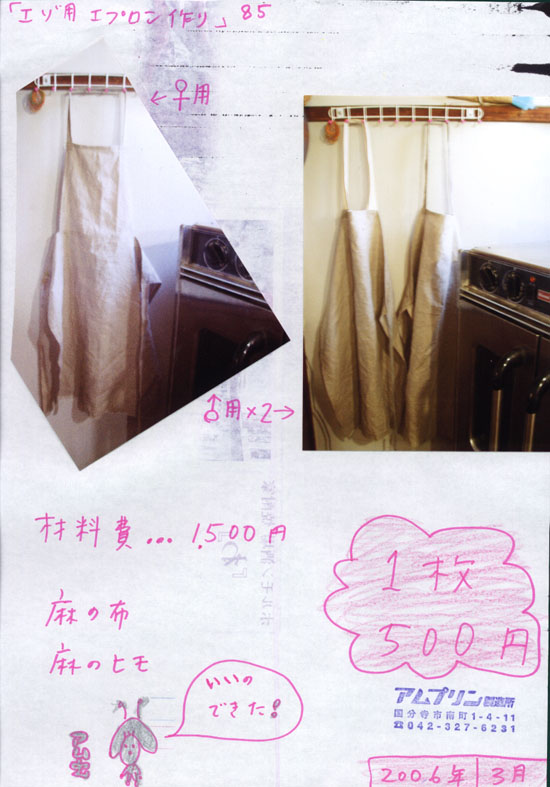 「エゾ用 エプロン作り」 85
←♀用
♂用×2→
材料費… 1,500円
麻の布
麻のヒモ
1枚
500円
いいの
できた!
アム虫
アムプリン
国分寺市南町1-4-11
☎042-327-6231
2006年 3月